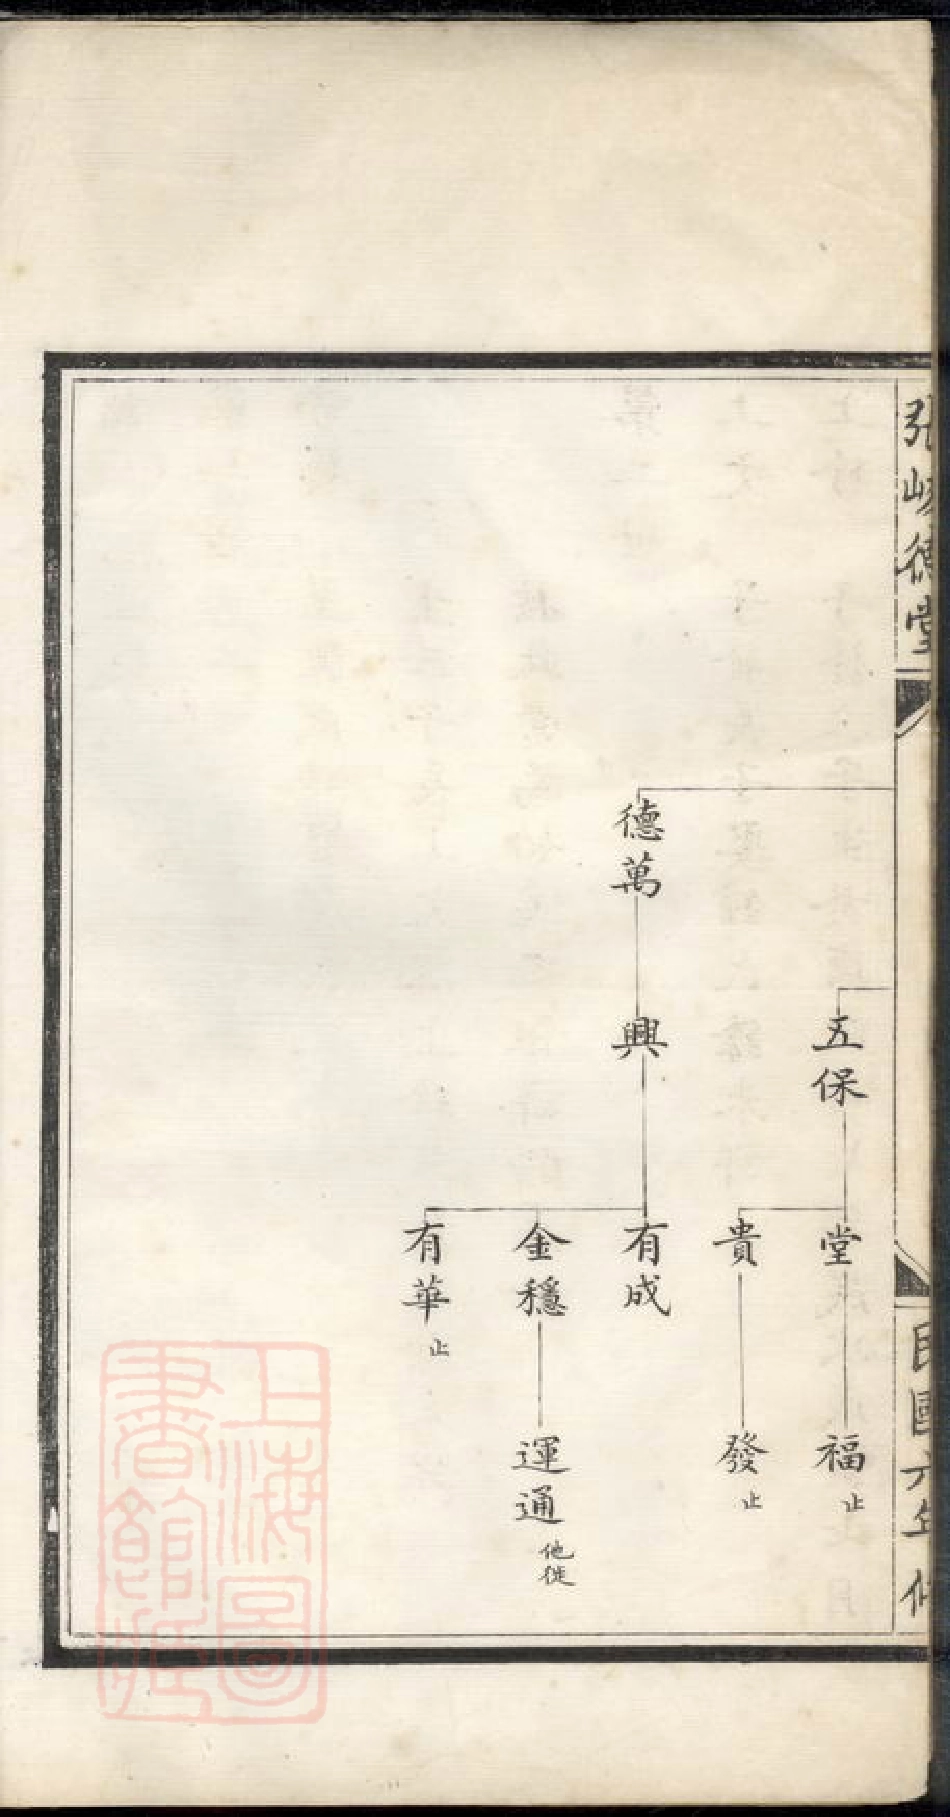 五保
堂
福
止
貴
發
止
德萬
興
有成
金穩
運通
他徙
有華
止
德堂
民國六年修
上海圖書館藏